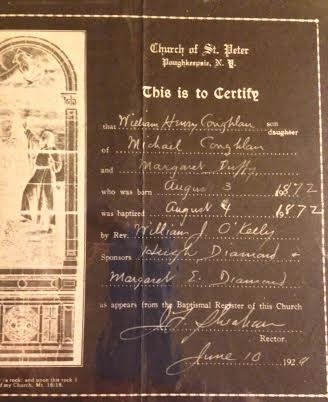 Church of St. Peter
Poughkeepsie, N. Y.
This is to Certify
that William Henry Coughlan son
daughter
of Michael Coughlan
and Margaret Duffy
who was born August 3 1872
was baptized August 4 1872
by Rev. William J O'Keely
Sponsors Hugh Diamond &
Margaret E. Diamond
as appears from the Baptismal Register of this Church
Sheahan
Rector.
June 10 192
is rock: and upon this rock I
my Church, Mt. 16:18.